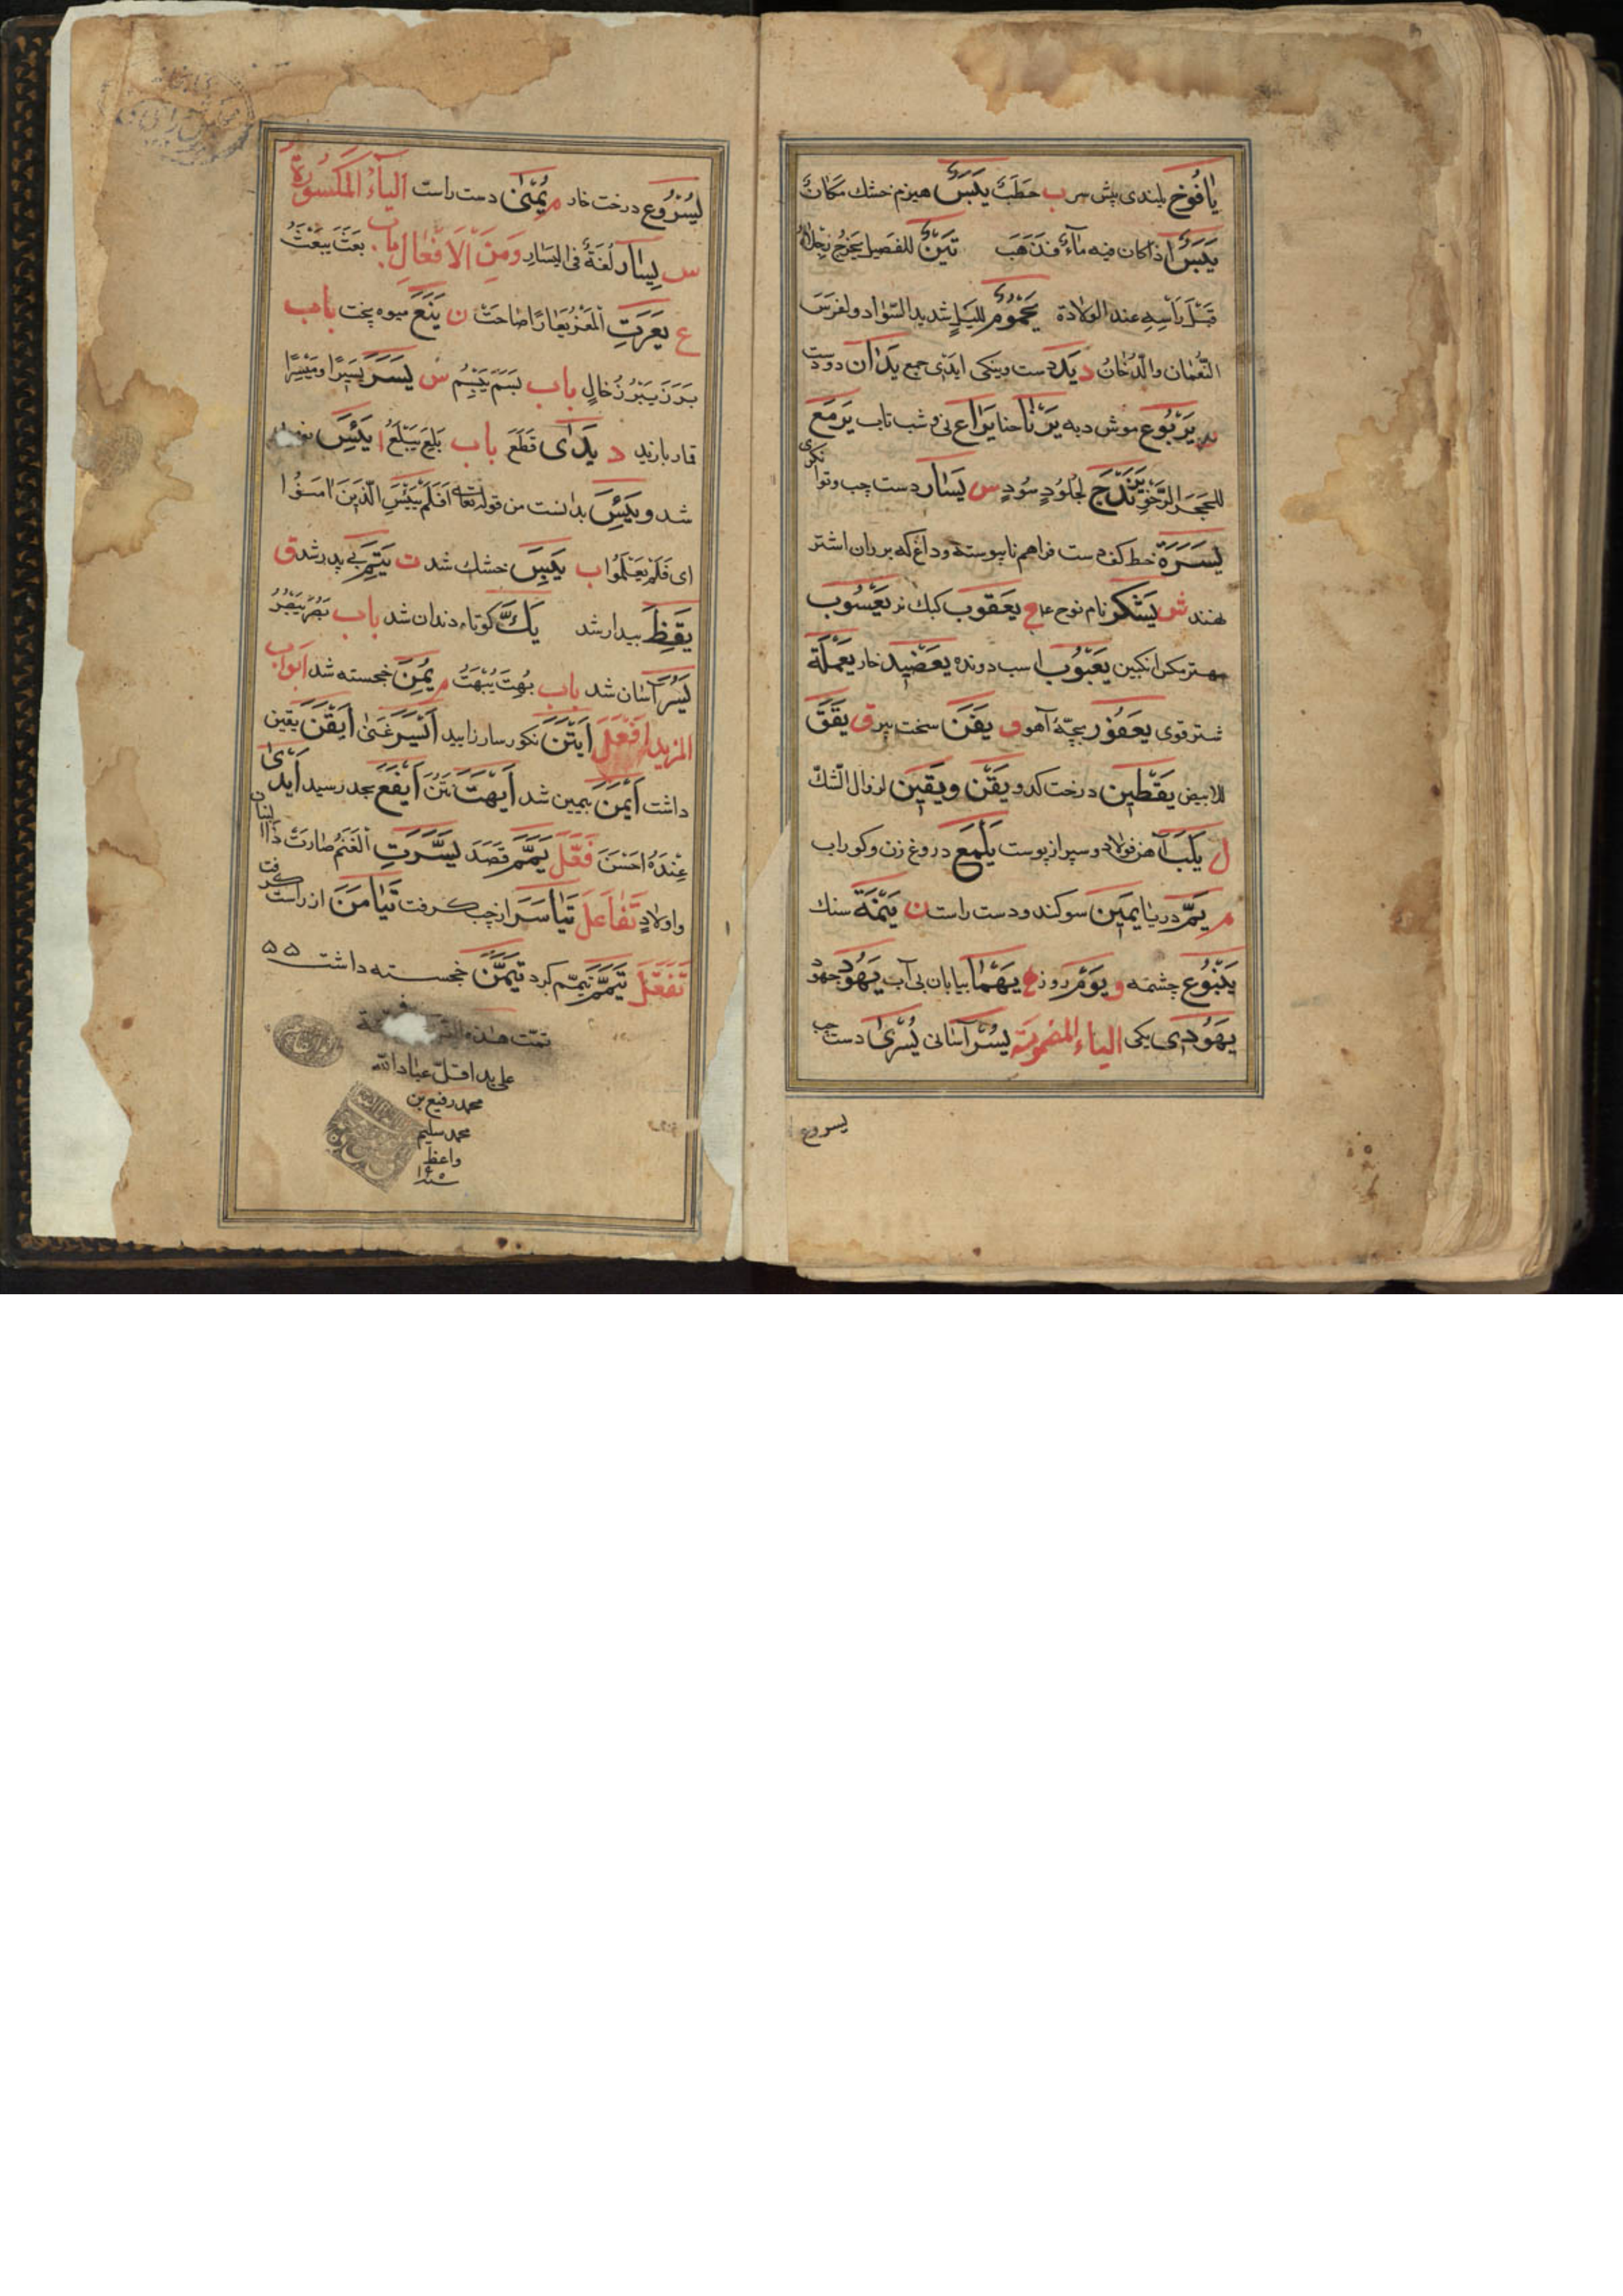 یافُوخ بلندی پیش سر ب حَطَبٌ یَبَسٌ هیزم خشك مَکانٌ
یَبَسٌ اذا کان فیه ماءٌ فذَهَبَ یَتْنٌ للفَصیل یَخْرُجُ رِجلاهُ
قَبْلَ رَأسِهِ عند الولادة یَحْمُومٌ للیَلٍ شدید السَّواد و لفَرَسَ
النُّعْمان والدُّخانُ د یَد دست و نیکی ایدَی جمع یَدان دو دست
ر یَرْبُوع موش دبه یَرْنا حنا یَراع نی و شب تاب یَرمَع
للحَجَرِ الرَّخْوِ یَرَنْدَج لجُلُودٍ سُودٍ س یَسار دست چپ و توانکری
یَسَرَة خط کف دست فراهم ناپیوسته و داغ که بر ران اشتر
نهند ش یَشْکر نام نوح ع یَعْقوب کبك نر یَعْسُوب
مهتر مکس انکبین یَعْبُوب اسب دونده یَعْضِید خار یَعْمَلَة
شتر قوی یَعْفُور بچّهٔ آهو ف یَفَن سخت پیر ق یَقَق
للابیض یَقْطین درخت کدو یَقَن و یَقین لزوال الشّكّ
ل یَلَب آهن فولاد و سپر از پوست یَلْمَع دروغ زن و کوراب
م یَمّ دریا یَمین سوکند و دست راست ن یَنَمَة سنك
یَنْبُوع چشمه و یَوْم روز ه یَهْما بیابان بی آب یَهُود جهود
یَهُودی یکی الیاء المضمومة یُسْر آسانی یُسْری دست چپ
یسروع
یُسْرُوع درخت خار م یُمْنی دست راست الیاءُ المَکسُورة
س یِسار لُغَةٌ فی الیَسار وَمِنَ الاَفْعال باب بَعَثَ یَبْعَثُ
ع یَعَرَتِ المَعْزُ یُعارًا صاحَتْ ن یَنَعَ میوه پخت باب
بَرَزَ یَبْرُزُ خالٍ باب بَسَمَ یَبْسِمُ س یَسَرَ یَسَرًا و مَیْسِرًا
قمار بازید د یَدی قَطَعَ باب بَلِعَ یَبْلَعُ ا یَئِسَ
شد و یَئِسَ بدانست من قوله تعالی اَفَلَمْ یَیْئَسِ الّذینَ اٰمَنُوا
ای فَلَمْ یَعْلَمُوا ب یَبِسَ خشك شد ت یَتِمَ بی پدر شد ق
یَقِظَ بیدار شد یَكَّ کوتاه دندان شد باب بَصُرَ یَبْصُرُ
یَسُرَ آسان شد باب بُهِتَ یُبْهَتُ م یُمِنَ خجسته شد ابواب
المزید اَفْعَلَ اَیْتَنَ نکوسار زایید اَیْسَرَ غَنیٰ اَیْقَنَ یقین
داشت اَیْمَنَ بیمین شد اَیْهَتَ نَتُنَ اَیْفَعَ بحد رسید اَیدیٰ
عِنْدَهُ اَحْسَنَ فَعَّلَ یَمَّمَ قَصَدَ یَسَّرَتِ الغَنَمُ صارَتْ ذا البان
و اولادٍ تَفاعَلَ تَیاسَرَ از چپ کرفت تَیامَنَ از راست کرفت
تَفَعَّلَ تَیَمَّمَ تیمّم کرد تَیَمَّنَ خجسته داشت ۵۵
تمت هذه
علی ید اقلّ عباد الله
محمد رفیع بن
محمد سلیم
واعظ